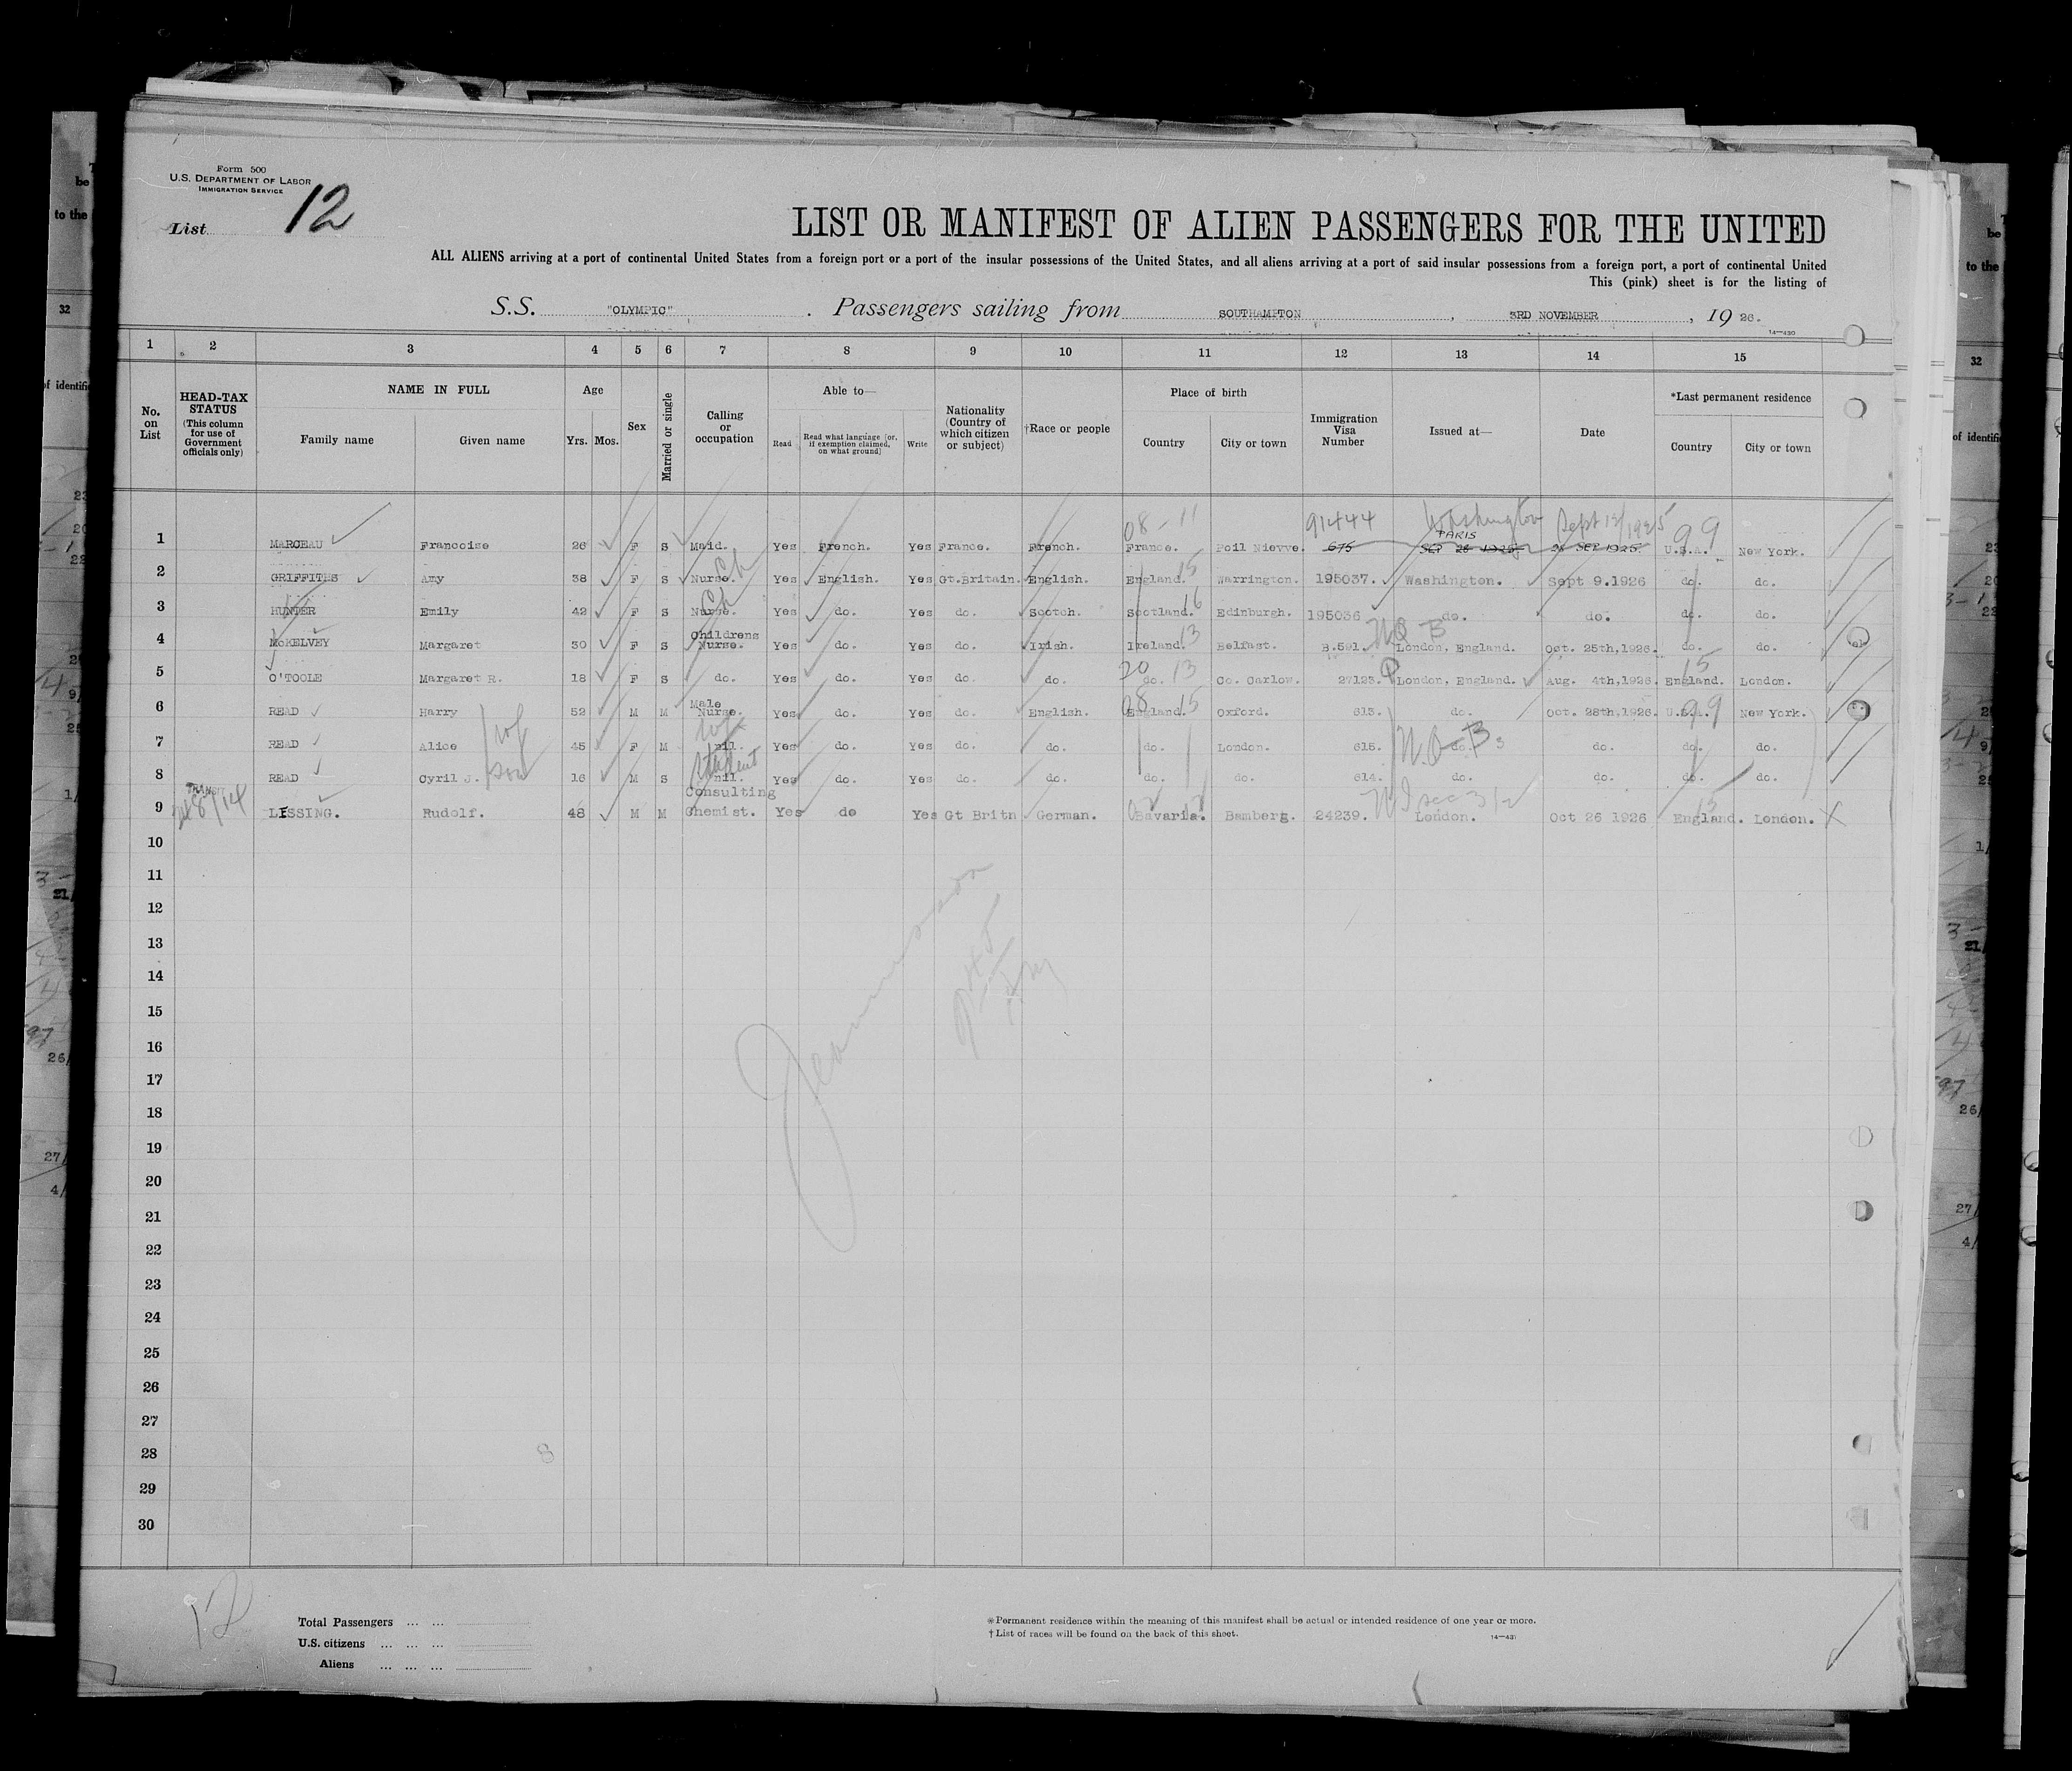 Form 500
U.S. DEPARTMENT OF LABOR
IMMIGRATION SERVICE
List 12
LIST OR MANIFEST OF ALIEN PASSENGERS FOR THE UNITED
ALL ALIENS arriving at a port of continental United States from a foreign port or a port of the insular possessions of the United States, and all aliens arriving at a port of said insular possessions from a foreign port, a port of continental United
This (pink) sheet is for the listing of
S.S. "OLYMPIC". Passengers sailing from SOUTHAMPTON, 3RD NOVEMBER, 19 26.
14—430
1 2 3 4 5 6 7 8 9 10 11 12 13 14 15
No. on List
HEAD-TAX STATUS (This column for use of Government officials only)
NAME IN FULL
Family name Given name
Age
Yrs. Mos.
Sex
Married or single
Calling or occupation
Able to—
Read Read what language [or, if exemption claimed, on what ground] Write
Nationality (Country of which citizen or subject)
†Race or people
Place of birth
Country City or town
Immigration Visa Number
Issued at—
Date
*Last permanent residence
Country City or town
08 - 11 91444 Washington Sept 12/1925 99
PARIS
1 MARCEAU Francoise 26 F S Maid. Yes French. Yes France. French. France. Foil Nievve. 675 SEP 26 1925 26 SEP 1925. U.S.A. New York.
Ch 15
2 GRIFFITHS Amy 38 F S Nurse. Yes English. Yes Gt.Britain. English. England. Warrington. 195037. Washington. Sept 9.1926 do. do.
Ch 16
3 HUNTER Emily 42 F S Nurse. Yes do. Yes do. Scotch. Scotland. Edinburgh. 195036 do. do. do. do.
N Q B
4 McKELVEY Margaret 30 F S Childrens Nurse. Yes do. Yes do. Irish. Ireland. 13 Belfast. B.591. London, England. Oct. 25th,1926. do. do.
20 13 15
5 O'TOOLE Margaret R. 18 F S do. Yes do. Yes do. do. do. Co. Carlow. 27123. London, England. Aug. 4th,1926. England. London.
08 15 99
6 READ Harry 52 M M Male Nurse. Yes do. Yes do. English. England. Oxford. 613. do. Oct. 28th,1926. U.S.A. New York.
wf wf N.Q B
7 READ Alice 45 F M nil. Yes do. Yes do. do. do. London. 615. do. do. do. do.
son Student
8 READ Cyril J. 16 M S nil. Yes do. Yes do. do. do. do. 614. do. do. do. do.
TRANSIT
15
9 LESSING. Rudolf. 48 M M Consulting Chemist. Yes do Yes Gt Britn German. Bavaria. Bamberg. 24239. London. Oct 26 1926 England. London.
10
11
12
13
14
15
16
17
18
19
20
21
22
23
24
25
26
27
28
29
30
8
12
Total Passengers ... ...
U.S. citizens ... ... ...
Aliens ... ... ...
*Permanent residence within the meaning of this manifest shall be actual or intended residence of one year or more.
†List of races will be found on the back of this sheet.
14—431